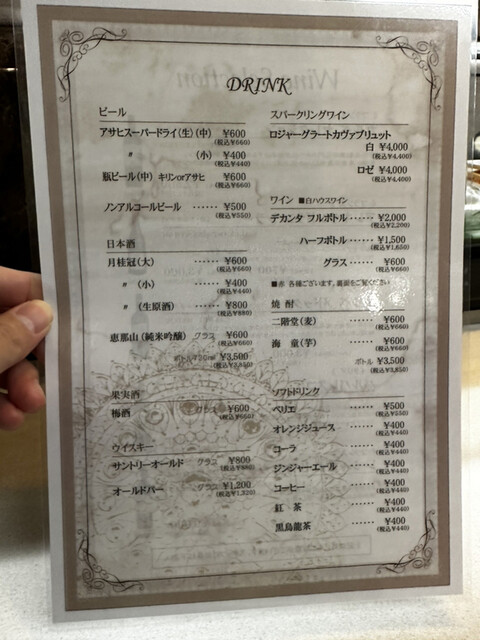 DRINK
ビール
アサヒスーパードライ(生)(中) ¥600
(税込¥660)
〃 (小) ¥400
(税込¥440)
瓶ビール(中) キリンorアサヒ ¥600
(税込¥660)
ノンアルコールビール ‥‥‥ ¥500
(税込¥550)
日本酒
月桂冠(大) ‥‥‥ ¥600
(税込¥660)
〃 (小) ‥‥‥ ¥400
(税込¥440)
〃 (生原酒) ‥‥‥ ¥800
(税込¥880)
恵那山(純米吟醸) グラス ¥600
(税込¥660)
ボトル720ml ¥3,500
(税込¥3,850)
果実酒
梅酒 グラス ¥600
(税込¥660)
ウイスキー
サントリーオールド グラス ¥800
(税込¥880)
オールドパー グラス ¥1,200
(税込¥1,320)
スパークリングワイン
ロジャーグラートカヴァブリュット
白 ¥4,000
(税込¥4,400)
ロゼ ¥4,000
(税込¥4,400)
ワイン ■白ハウスワイン
デカンタ フルボトル ‥‥‥ ¥2,000
(税込¥2,200)
ハーフボトル ‥‥‥ ¥1,500
(税込¥1,650)
グラス ‥‥‥ ¥600
(税込¥660)
■赤 各種ございます。裏面をご覧ください
焼酎
二階堂(麦) ‥‥‥ ¥600
(税込¥660)
海 童(芋) ‥‥‥ ¥600
(税込¥660)
ボトル ¥3,500
(税込¥3,850)
ソフトドリンク
ペリエ ‥‥‥ ¥500
(税込¥550)
オレンジジュース ‥‥‥ ¥400
(税込¥440)
コーラ ‥‥‥ ¥400
(税込¥440)
ジンジャーエール ‥‥‥ ¥400
(税込¥440)
コーヒー ‥‥‥ ¥400
(税込¥440)
紅 茶 ‥‥‥ ¥400
(税込¥440)
黒烏龍茶 ‥‥‥ ¥400
(税込¥440)